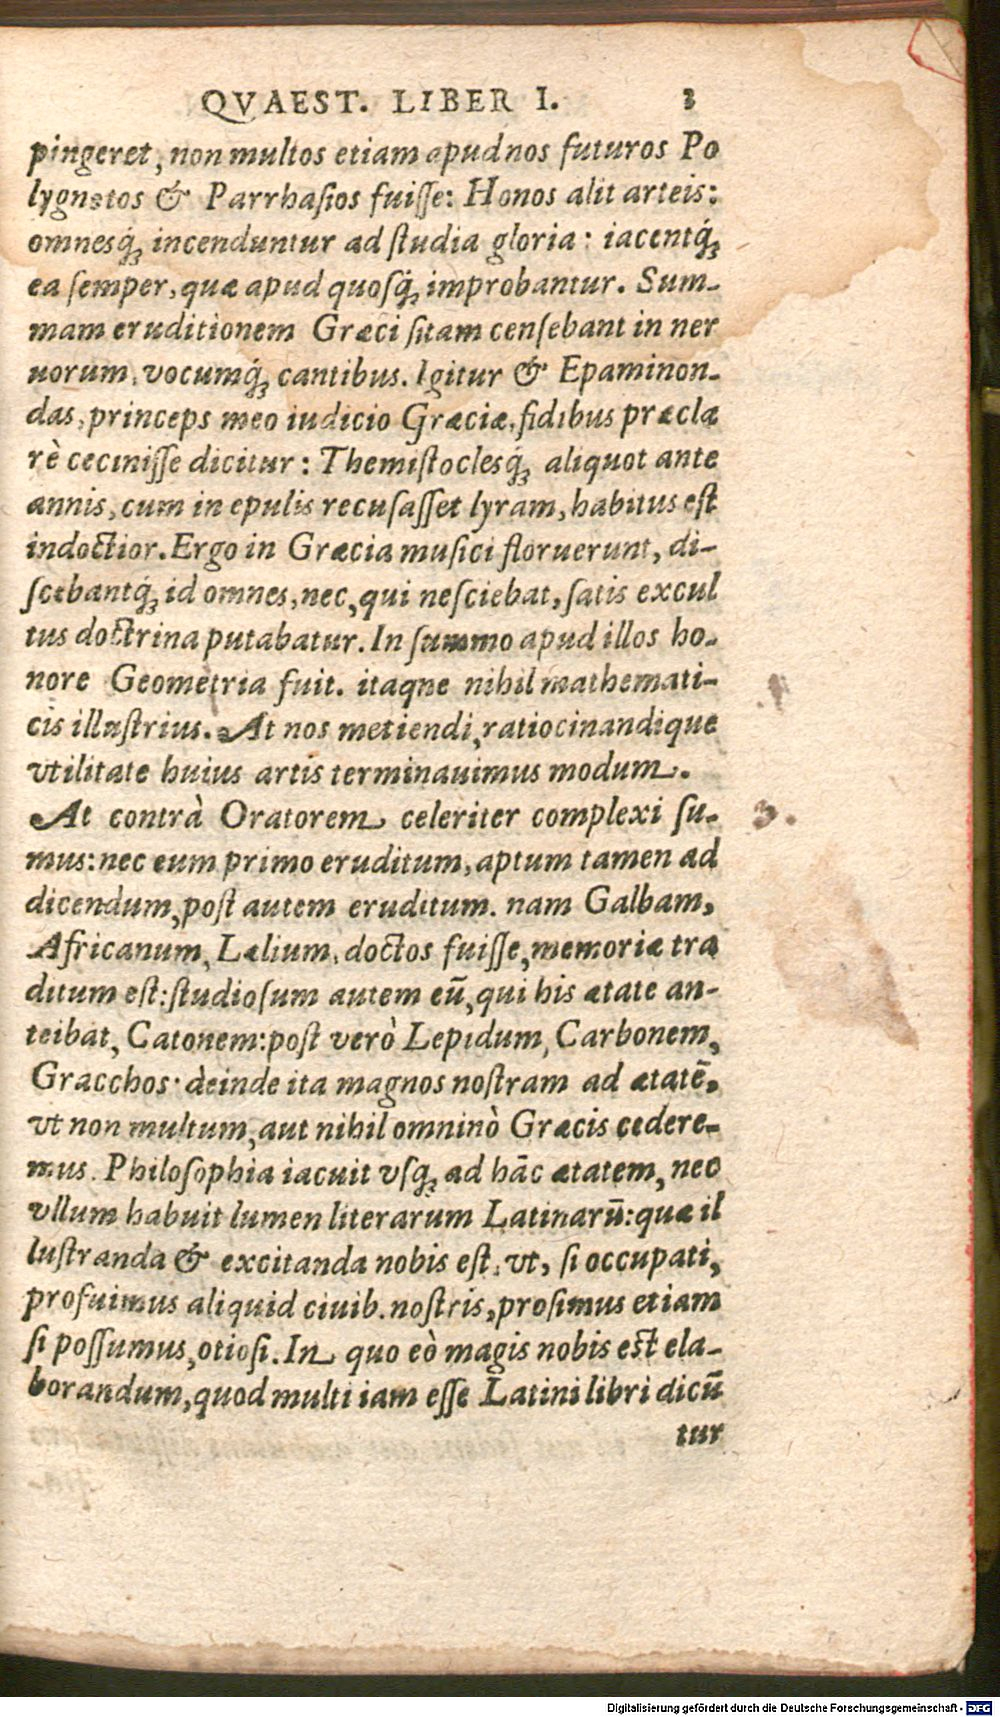 QVAEST. LIBER I. 3
pingeret, non multos etiam apud nos futuros Po
lygnotos & Parrhaſios fuiſſe: Honos alit arteis:
omnesq́ꝫ incenduntur ad ſtudia gloria: iacentq́ꝫ
ea ſemper, quæ apud quoſq́ꝫ improbantur. Sum-
mam eruditionem Græci ſitam cenſebant in ner
uorum, vocumq́ꝫ cantibus. Igitur & Epaminon-
das, princeps meo iudicio Græciæ, fidibus præcla
rè ceciniſſe dicitur: Themiſtoclesq́ꝫ aliquot ante
annis, cum in epulis recuſaſſet lyram, habitus eſt
indoctior. Ergo in Græcia muſici floruerunt, di-
ſcebantq́ꝫ id omnes, nec, qui neſciebat, ſatis excul
tus doctrina putabatur. In ſummo apud illos ho-
nore Geometria fuit. itaqne nihil mathemati-
cis illuſtrius. At nos metiendi, ratiocinandique
vtilitate huius artis terminauimus modum.
At contrà Oratorem celeriter complexi ſu-
mus: nec eum primo eruditum, aptum tamen ad
dicendum, poſt autem eruditum. nam Galbam,
Africanum, Lælium, doctos fuiſſe, memoriæ tra
ditum eſt: ſtudioſum autem eũ, qui his ætate an-
teibat, Catonem: poſt verò Lepidum, Carbonem,
Gracchos· deinde ita magnos noſtram ad ætatẽ,
vt non multum, aut nihil omninò Græcis cedere-
mus. Philoſophia iacuit vſqꝫ ad hãc ætatem, nec
vllum habuit lumen literarum Latinarũ: quæ il
luſtranda & excitanda nobis eſt, vt, ſi occupati,
profuimus aliquid ciuib. noſtris, proſimus etiam
ſi poſſumus, otioſi. In quo eò magis nobis eſt ela-
borandum, quod multi iam eſſe Latini libri dicũ
tur
3.
Digitalisierung gefördert durch die Deutsche Forschungsgemeinschaft - DFG